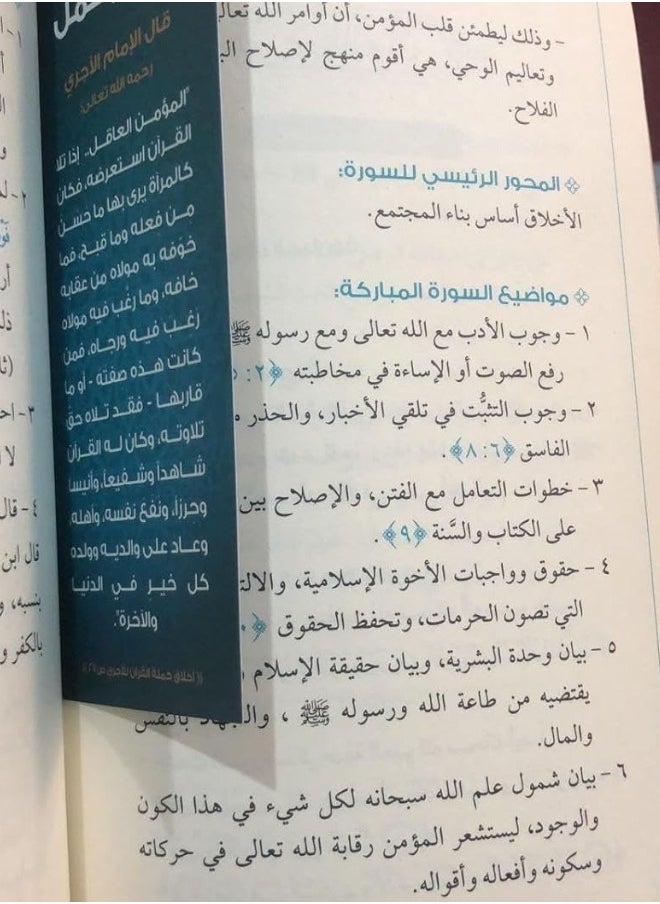 - وذلك ليطمئن قلب المؤمن، أن أوامر الله تعالى
وتعاليم الوحي، هي أقوم منهج لإصلاح
الفلاح.
المحور الرئيسي للسورة:
الأخلاق أساس بناء المجتمع.
مواضيع السورة المباركة:
١ - وجوب الأدب مع الله تعالى ومع رسوله ﷺ
رفع الصوت أو الإساءة في مخاطبته ﴿٢:
٢ - وجوب التثبُّت في تلقي الأخبار، والحذر
الفاسق ﴿٦: ٨﴾.
٣ - خطوات التعامل مع الفتن، والإصلاح بين
على الكتاب والسَّنة ﴿٩﴾.
٤ - حقوق وواجبات الأخوة الإسلامية،
التي تصون الحرمات، وتحفظ الحقوق
٥ - بيان وحدة البشرية، وبيان حقيقة الإسلام
يقتضيه من طاعة الله ورسوله ﷺ، والجهاد بالنفس
والمال.
٦ - بيان شمول علم الله سبحانه لكل شيء في هذا الكون
والوجود، ليستشعر المؤمن رقابة الله تعالى في حركاته
وسكونه وأفعاله وأقواله.
قال الإمام الآجري
رحمه الله تعالى:
"المؤمن العاقل.. إذا تلا
القرآن استعرضه، فكان
كالمرآة يرى بها ما حسن
من فعله وما قبح، فما
خوّفه به مولاه من عقابه
خافه، وما رغّب فيه مولاه
رغب فيه ورجاه، فمن
كانت هذه صفته - أو ما
قاربها - فقد تلاه حق
تلاوته، وكان له القرآن
شاهداً وشفيعاً، وأنيساً
وحرزاً، ونفع نفسه، وأهله،
وعاد على والديه وولده
كل خير في الدنيا
والآخرة".
أخلاق حملة القرآن للآجري ص
٤ - قال
قال ابن
بنسبه، و
بالكفر و